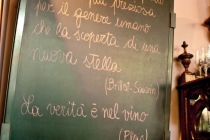 più preziosa
per il genere umano
che la scoperta di una
nuova stella.
(Brillat-Savarin)
La verità è nel vino
(Plinio)